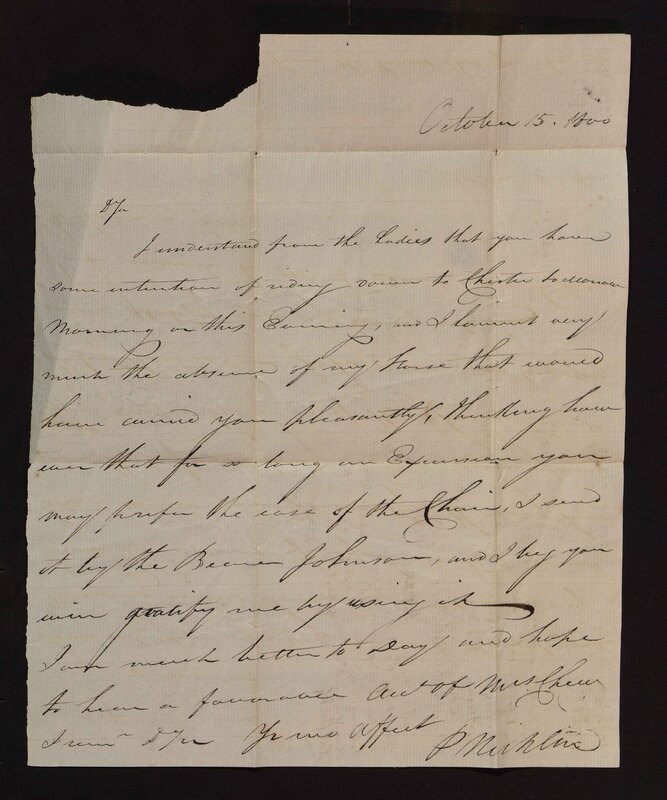 October 15. 1800
D Sr
I understand from the Ladies that you have
some intention of riding down to Chester tomorrow
Morning or this Evening, and I lament very
much the absence of my horse that would
have carried you pleasantly, thinking how
ever that for so long an Excursion you
may prefer the ease of the Chair, I send
it by the Bearer Johnson, and I beg you
will gratify me by using it
I am much better to Day and hope
to hear a favorable Acct of Mrs Chew
I remn D Sr Yr mo affect P Nicklin